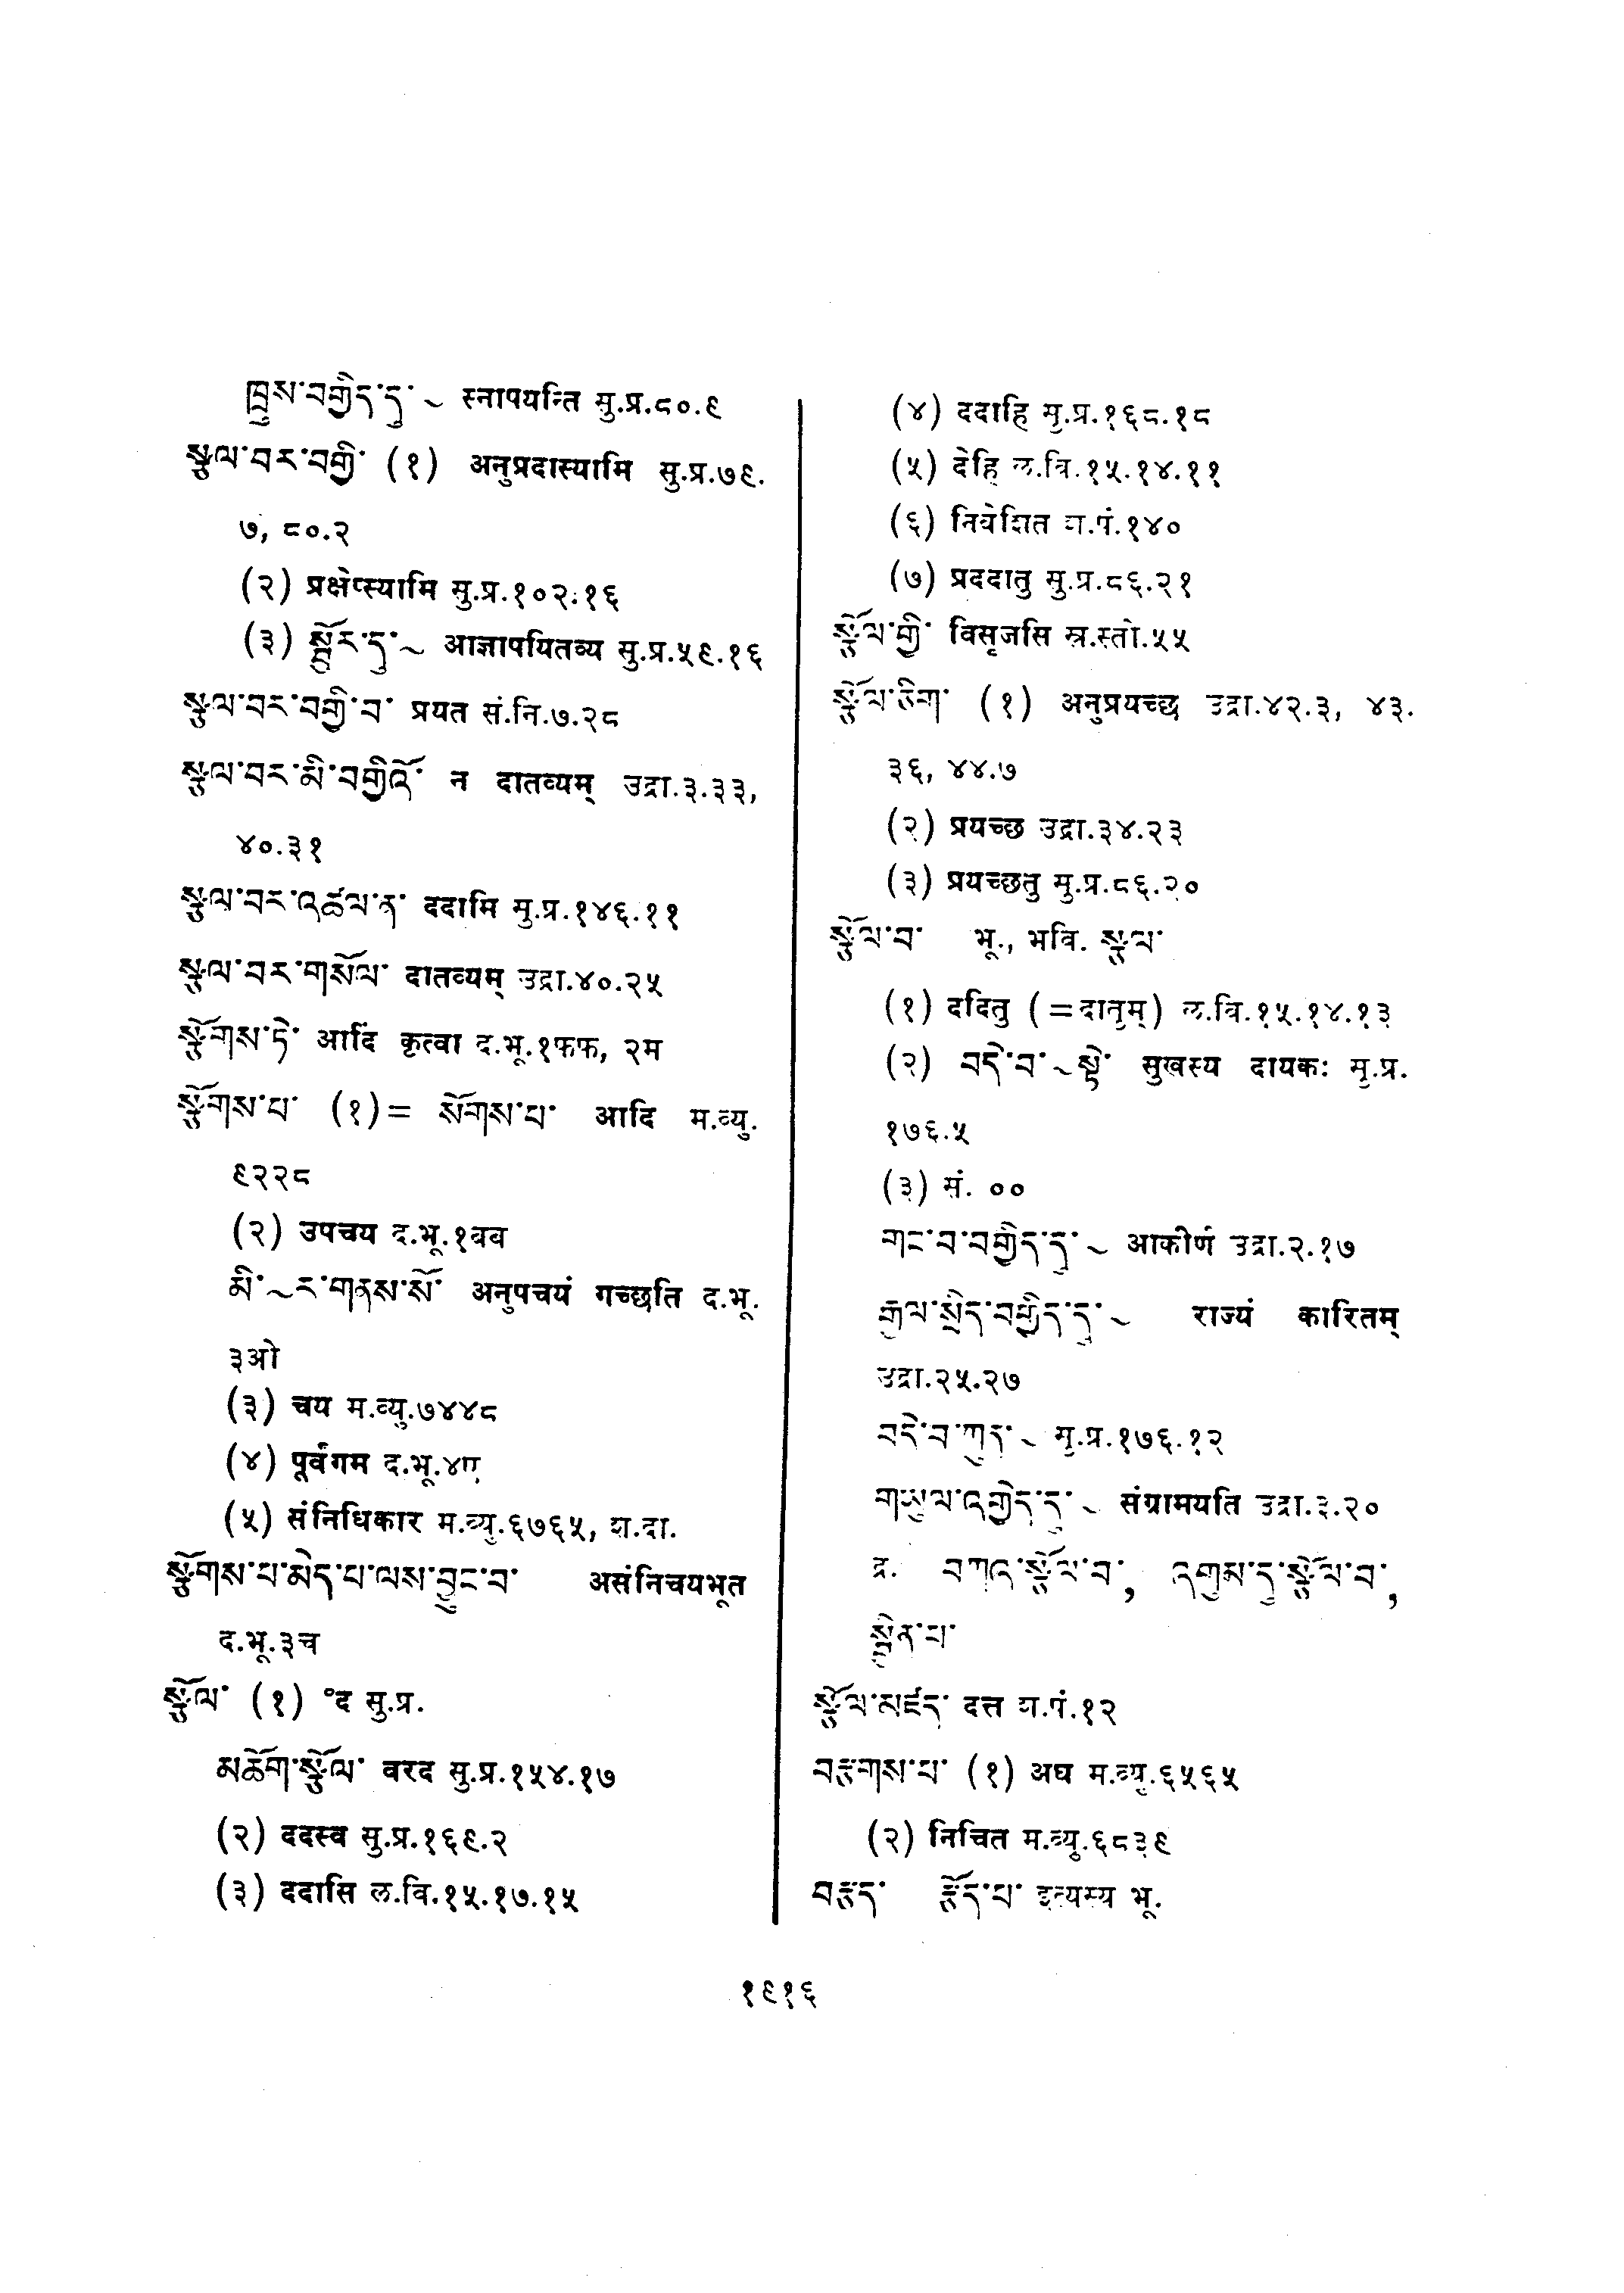 ཁྲུས་བགྱིད་དུ་ ~ स्नापयन्ति सु.प्र.८०.९
སྩལ་བར་བགྱི་ (१) अनुप्रदास्यामि सु.प्र.७९.
७, ८०.२
(२) प्रक्षेप्स्यामि सु.प्र.१०२.१६
(३) སྦྱོར་དུ་ ~ आज्ञापयितव्य सु.प्र.५९.१६
སྩལ་བར་བགྱི་བ་ प्रयत सं.नि.७.२८
སྩལ་བར་མི་བགྱིའོ་ न दातव्यम् उद्रा.३.३३,
४०.३१
སྩལ་བར་འཚལ་ན་ ददामि सु.प्र.१४६.११
སྩལ་བར་གསོལ་ दातव्यम् उद्रा.४०.२५
སྩོགས་ཏེ་ आदिं कृत्वा द.भू.१फफ, २म
སྩོགས་པ་ (१) = སོགས་པ་ आदि म.व्यु.
९२२८
(२) उपचय द.भू.१बब
མི་ ~ ར་གནས་སོ་ अनुपचयं गच्छति द.भू.
३ओ
(३) चय म.व्यु.७४४८
(४) पूर्वंगम द.भू.४ए
(५) संनिधिकार म.व्यु.६७६५, श.दा.
སྩོགས་པ་མེད་པ་ལས་བྱུང་བ་ असंनिचयभूत
द.भू.३च
སྩོལ་ (१) °द सु.प्र.
མཆོག་སྩོལ་ वरद सु.प्र.१५४.१७
(२) ददस्व सु.प्र.१६९.२
(३) ददासि ल.वि.१५.१७.१५
(४) ददाहि सु.प्र.१६८.१८
(५) देहि ल.वि.१५.१४.११
(६) निवेशित श.पं.१४०
(७) प्रददातु सु.प्र.८६.२१
སྩོལ་གྱི་ विसृजसि स्र.स्तो.५५
སྩོལ་ཅིག་ (१) अनुप्रयच्छ उद्रा.४२.३, ४३.
३६, ४४.७
(२) प्रयच्छ उद्रा.३४.२३
(३) प्रयच्छतु सु.प्र.८६.२०
སྩོལ་བ་ भू., भवि. སྩལ་
(१) ददितु (=दातुम्) ल.वि.१५.१४.१३
(२) བདེ་བ་ ~ སྟེ་ सुखस्य दायकः सु.प्र.
१७६.५
(३) सं. ००
གང་བ་བགྱིད་དུ་ ~ आकीर्ण उद्रा.२.१७
རྒྱལ་སྲིད་བགྱིད་དུ་ ~ राज्यं कारितम्
उद्रा.२५.२७
བདེ་བ་ཀུན་ ~ सु.प्र.१७६.१२
གཡུལ་འགྱེད་དུ་ ~ संग्रामयति उद्रा.३.२०
द्र. བཀའ་སྩོལ་བ་, འགུམ་དུ་སྩོལ་བ་,
སྦྱིན་པ་
སྩོལ་མཛད་ दत्त श.पं.१२
བརྩགས་པ་ (१) अघ म.व्यु.६५६५
(२) निचित म.व्यु.६८३९
བརྩད་ རྩོད་པ་ इत्यस्य भू.
१९१६